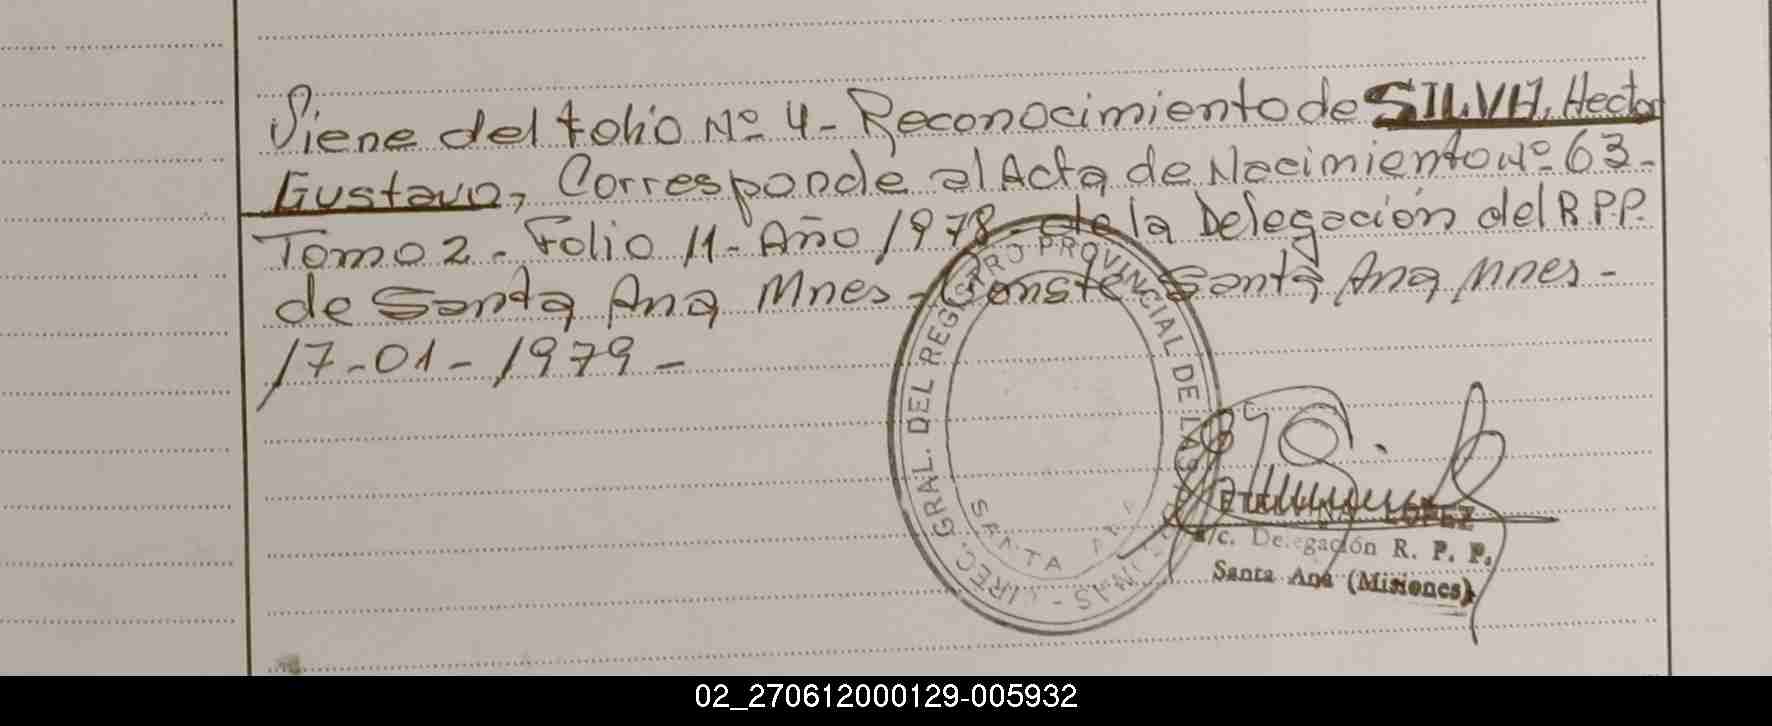 Viene del folio Nº 4 - Reconocimiento de SILVA, Hector
Gustavo, Corresponde al Acta de Nacimiento Nº 63 -
Tomo 2 - Folio 11 - Año 1978 - de la Delegación del R.P.P.
de Santa Ana Mnes - Conste - Santa Ana Mnes -
17-01-1979 -
GRAL. DEL REGISTRO PROVINCIAL DE LAS
SANTA
LOPEZ
a/c. Delegación R. P. P.
Santa Ana (Misiones)
02_270612000129-005932